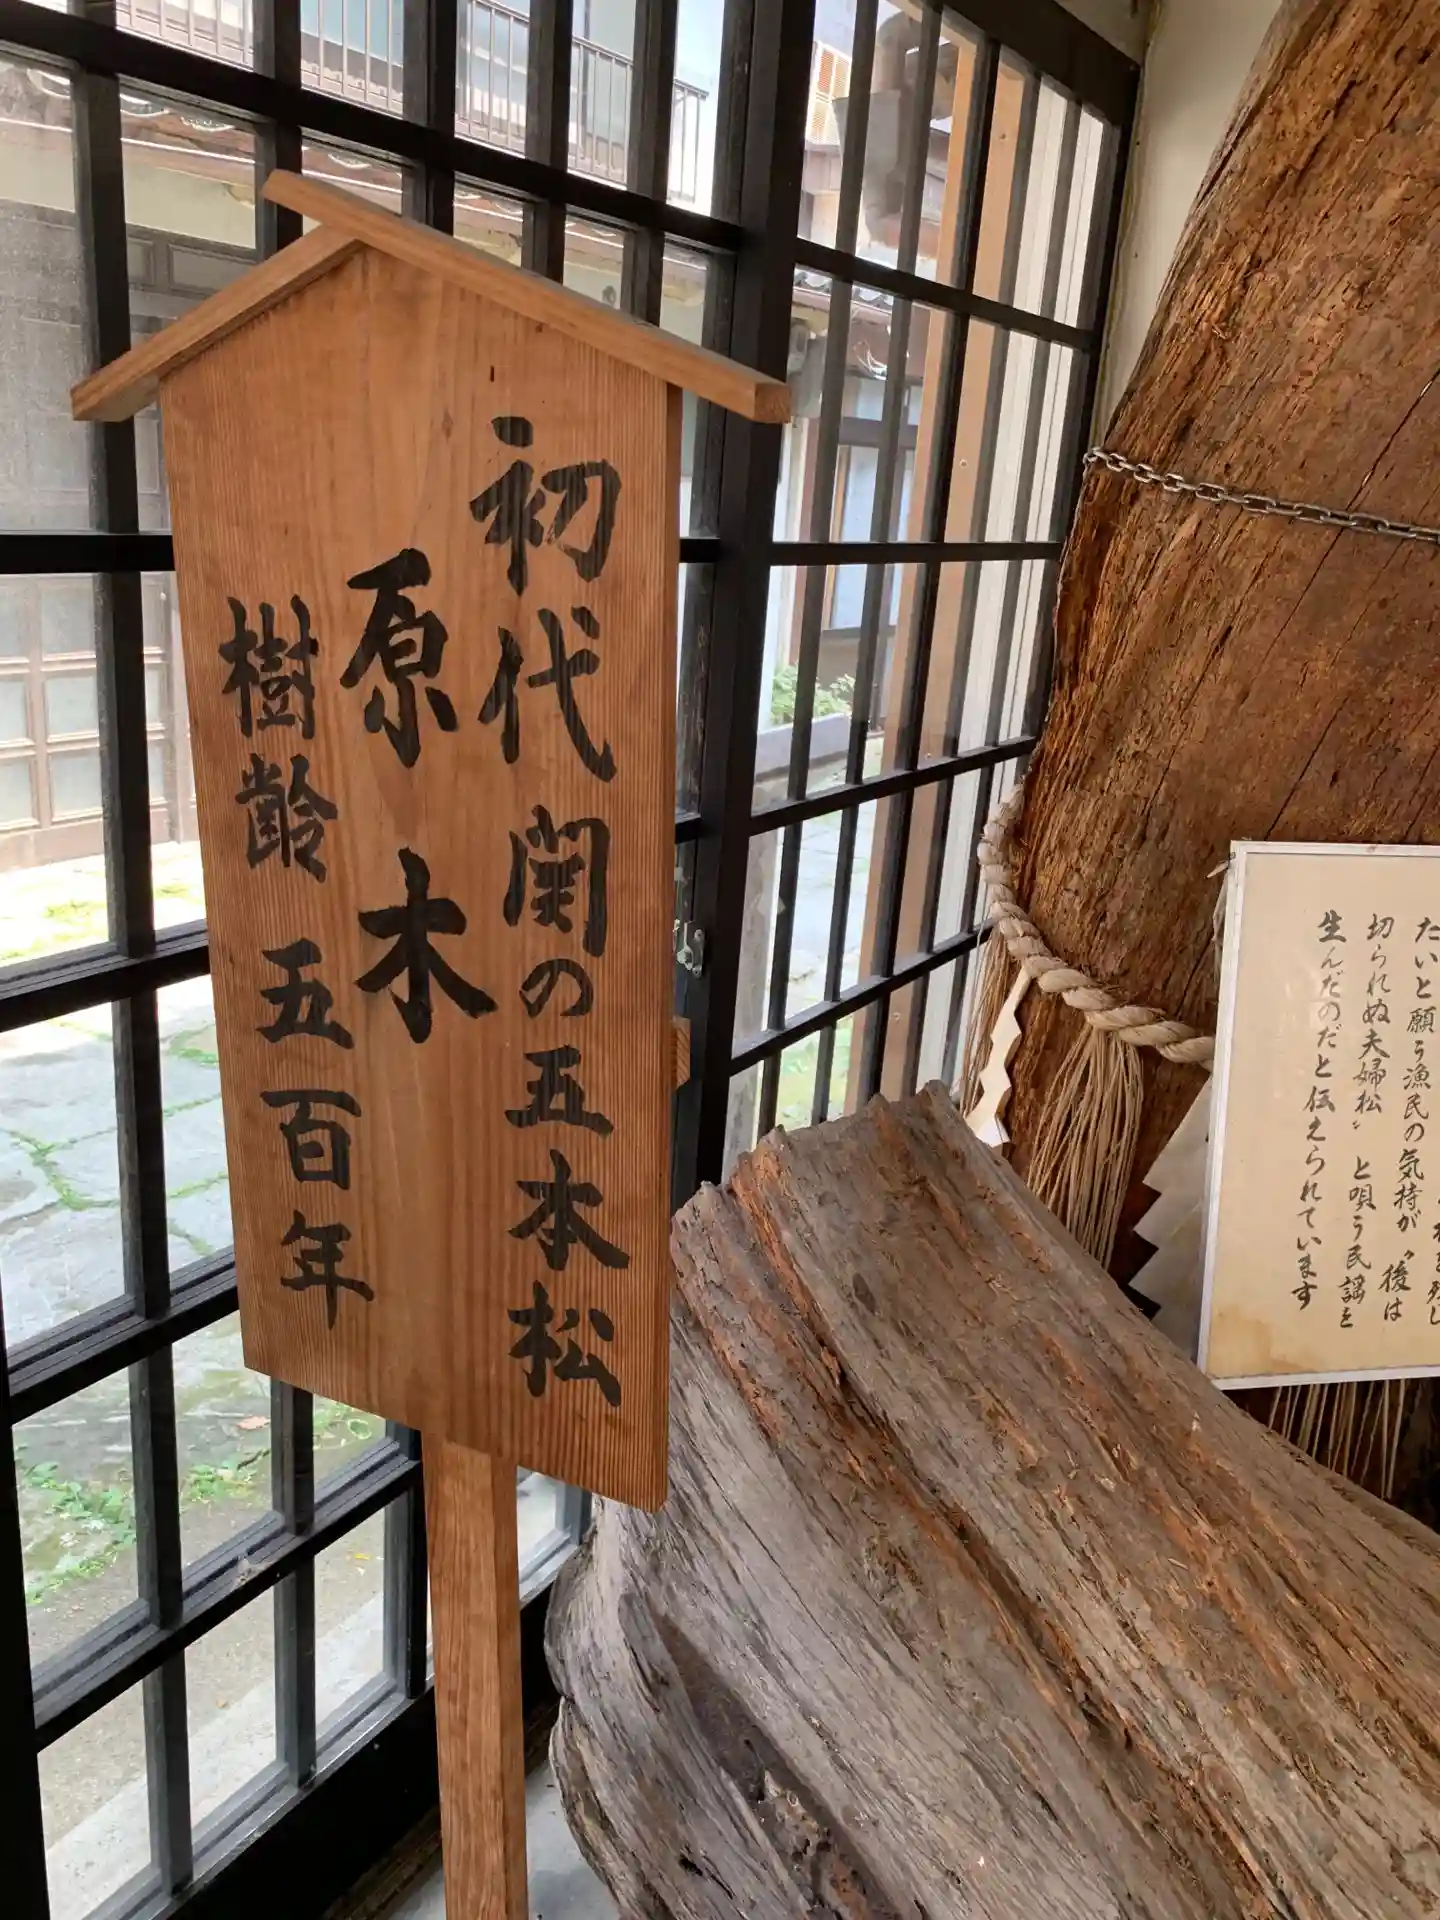 初代 関の五本松
原木
樹齢 五百年
たいと願う漁民の気持が〝後は
切られぬ夫婦松〟と唄う民謡を
生んだのだと伝えられています